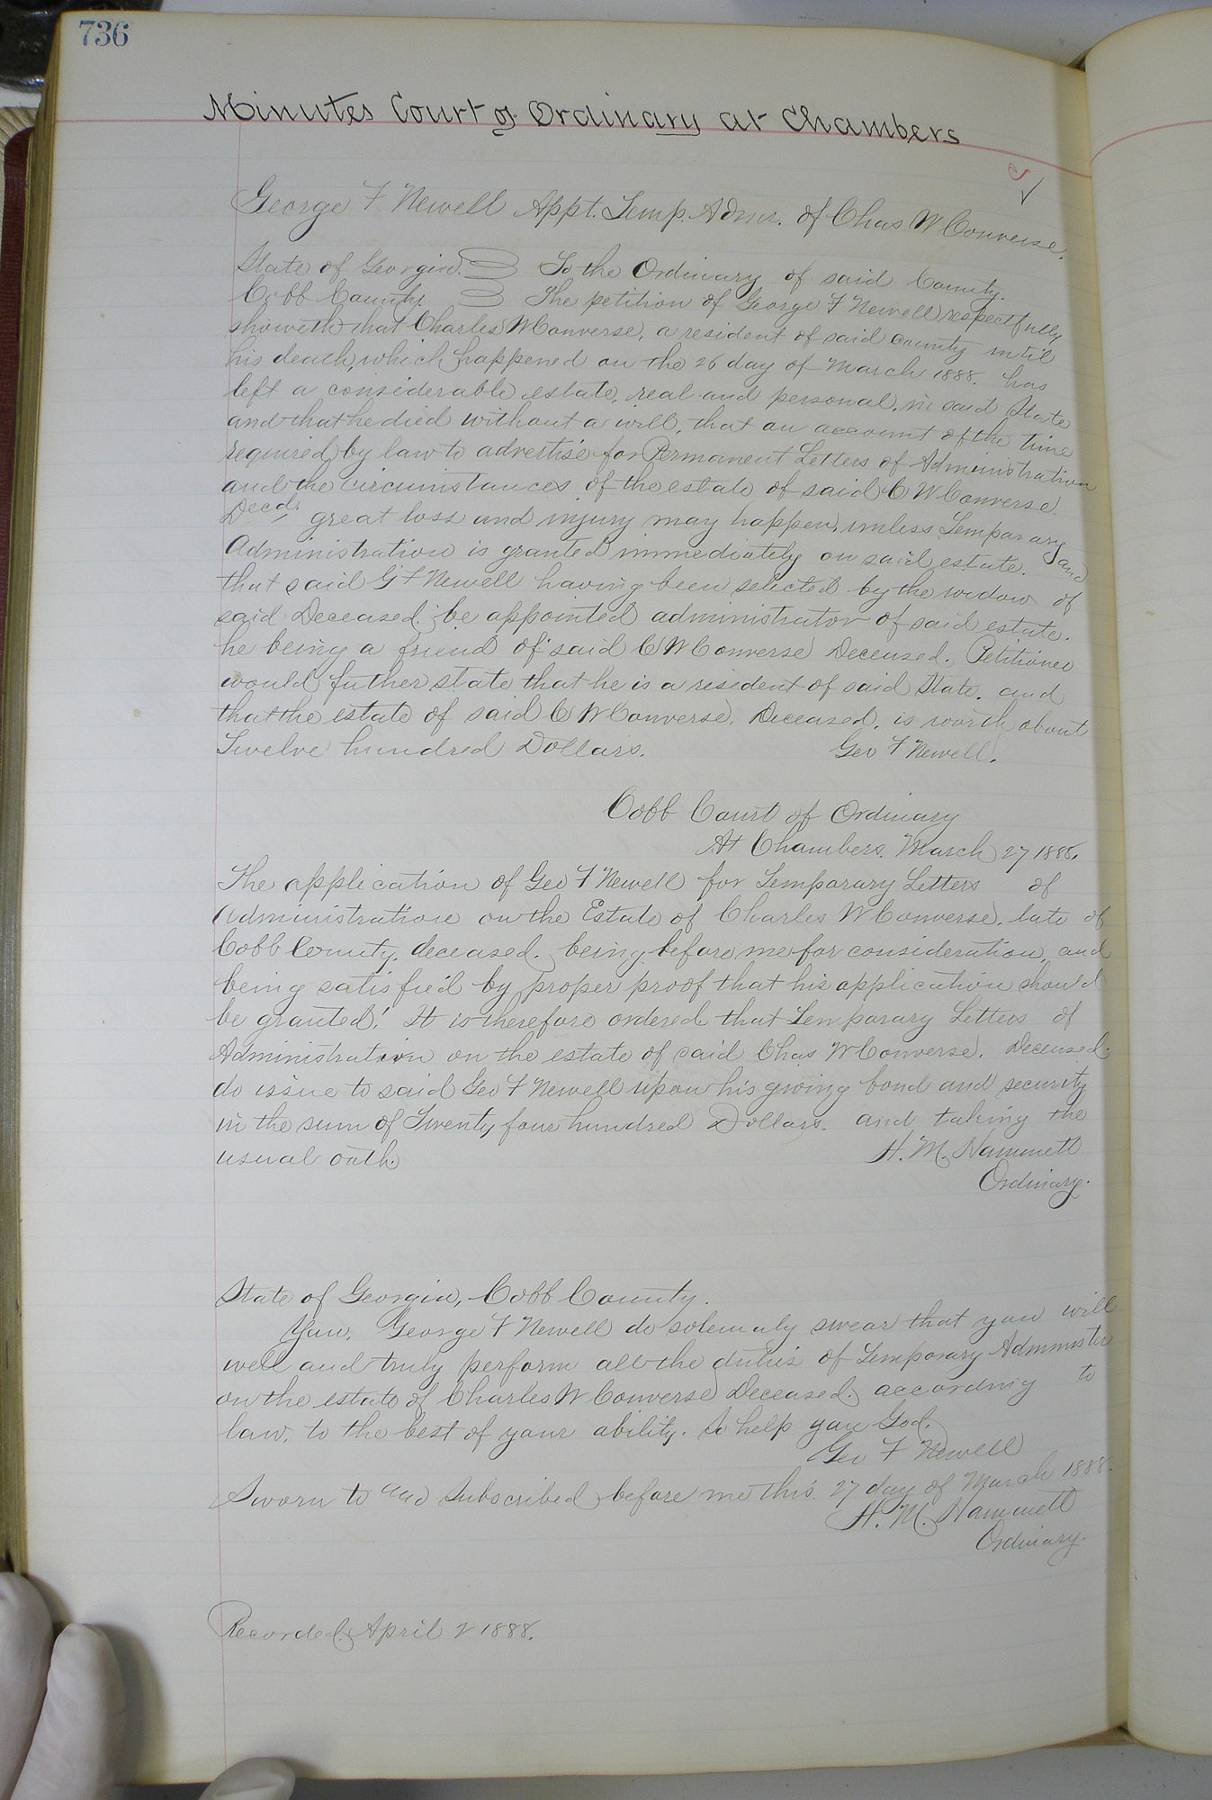 736
Minutes Court of Ordinary at Chambers
George F Newell Appt. Temp. Admr. of Chas W Converse.
State of Georgia. To the Ordinary of said County.
Cobb County The petition of George F Newell respectfully
showeth that Charles W Converse, a resident of said county until
his death, which happened on the 26 day of March 1888. has
left a considerable estate, real and personal, in said State
and that he died without a will, that on account of the time
required by law to advertise for Permanent Letters of Administration
and the circumstances of the estate of said C W Converse
Decd. great loss and injury may happen, unless Temporary
Administration is granted immediately on said estate. and
that said G F Newell having been selected by the widow of
said Deceased, be appointed administrator of said estate.
he being a friend of said C W Converse Deceased. Petitioner
would futher state that he is a resident of said State. and
that the estate of said C W Converse. Deceased. is worth about
Twelve hundred Dollars. Geo F Newell.
Cobb Court of Ordinary
At Chambers. March 27 1888.
The application of Geo F Newell for Temporary Letters of
Administration on the Estate of Charles W Converse. late of
Cobb County. deceased. being before me for consideration, and
being satisfied by proper proof that his application should
be granted! It is therefore ordered that Temporary Letters of
Administration on the estate of said Chas W Converse. Deceased.
do issue to said Geo F Newell upon his giving bond and security
in the sum of Twenty four hundred Dollars. and taking the
usual oath. H. M. Hammett
Ordinary.
State of Georgia, Cobb County.
You, George F Newell do solemnly swear that you will
well and truly perform all the duties of Temporary Administer
on the estate of Charles W Converse Deceased. according to
law. to the best of your ability. So help you God.
Geo F Newell
Sworn to and Subscribed before me this 27 day of March 1888.
H. M. Hammett
Ordinary.
Recorded April 2 1888.